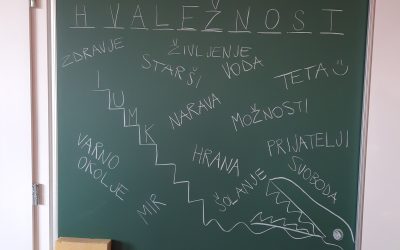 HVALEŽNOST
ZDRAVJE
ŽIVLJENJE
STARŠI
VODA
TETA
I
U
M
K
NARAVA
MOŽNOSTI
VARNO
OKOLJE
HRANA
PRIJATELJI
SVOBODA
MIR
ŠOLANJE